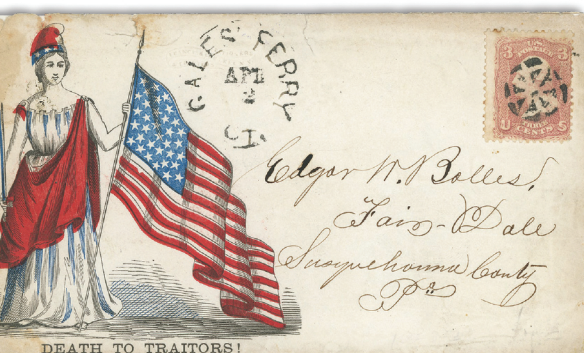 GALES FERRY
APR
2
CT
3 3
U S
CENTS
Edgar W. Bolles.
Fair-Dale
Susquehanna County
Pa
DEATH TO TRAITORS!